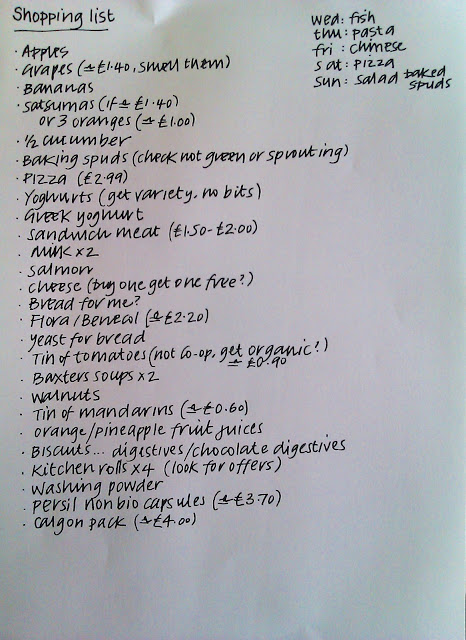 Shopping list
· Apples
· Grapes (≏£1.40, smell them)
· Bananas
· Satsumas (if ≏ £1.40)
or 3 oranges (≏£1.00)
· ½ cucumber
· Baking spuds (check not green or sprouting)
· Pizza (£2.99)
· Yoghurts (get variety, no bits)
· Greek yoghurt
· Sandwich meat (£1.50-£2.00)
· Milk x 2
· Salmon
· cheese (buy one get one free?)
· Bread for me?
· Flora/Benecol (≏£2.20)
· Yeast for bread
· Tin of tomatoes (not Co-op, get organic!)
≏ £0.90
· Baxters soups x 2
· Walnuts
· Tin of mandarins (≏£0.60)
· orange/pineapple fruit juices
· Biscuits... digestives/chocolate digestives
· Kitchen rolls x 4 (look for offers)
· Washing powder
· Persil non bio capsules (≏£3.70)
· Calgon pack (≏£4.00)
wed: fish
thu: pasta
fri: chinese
sat: pizza
sun: salad baked
spuds